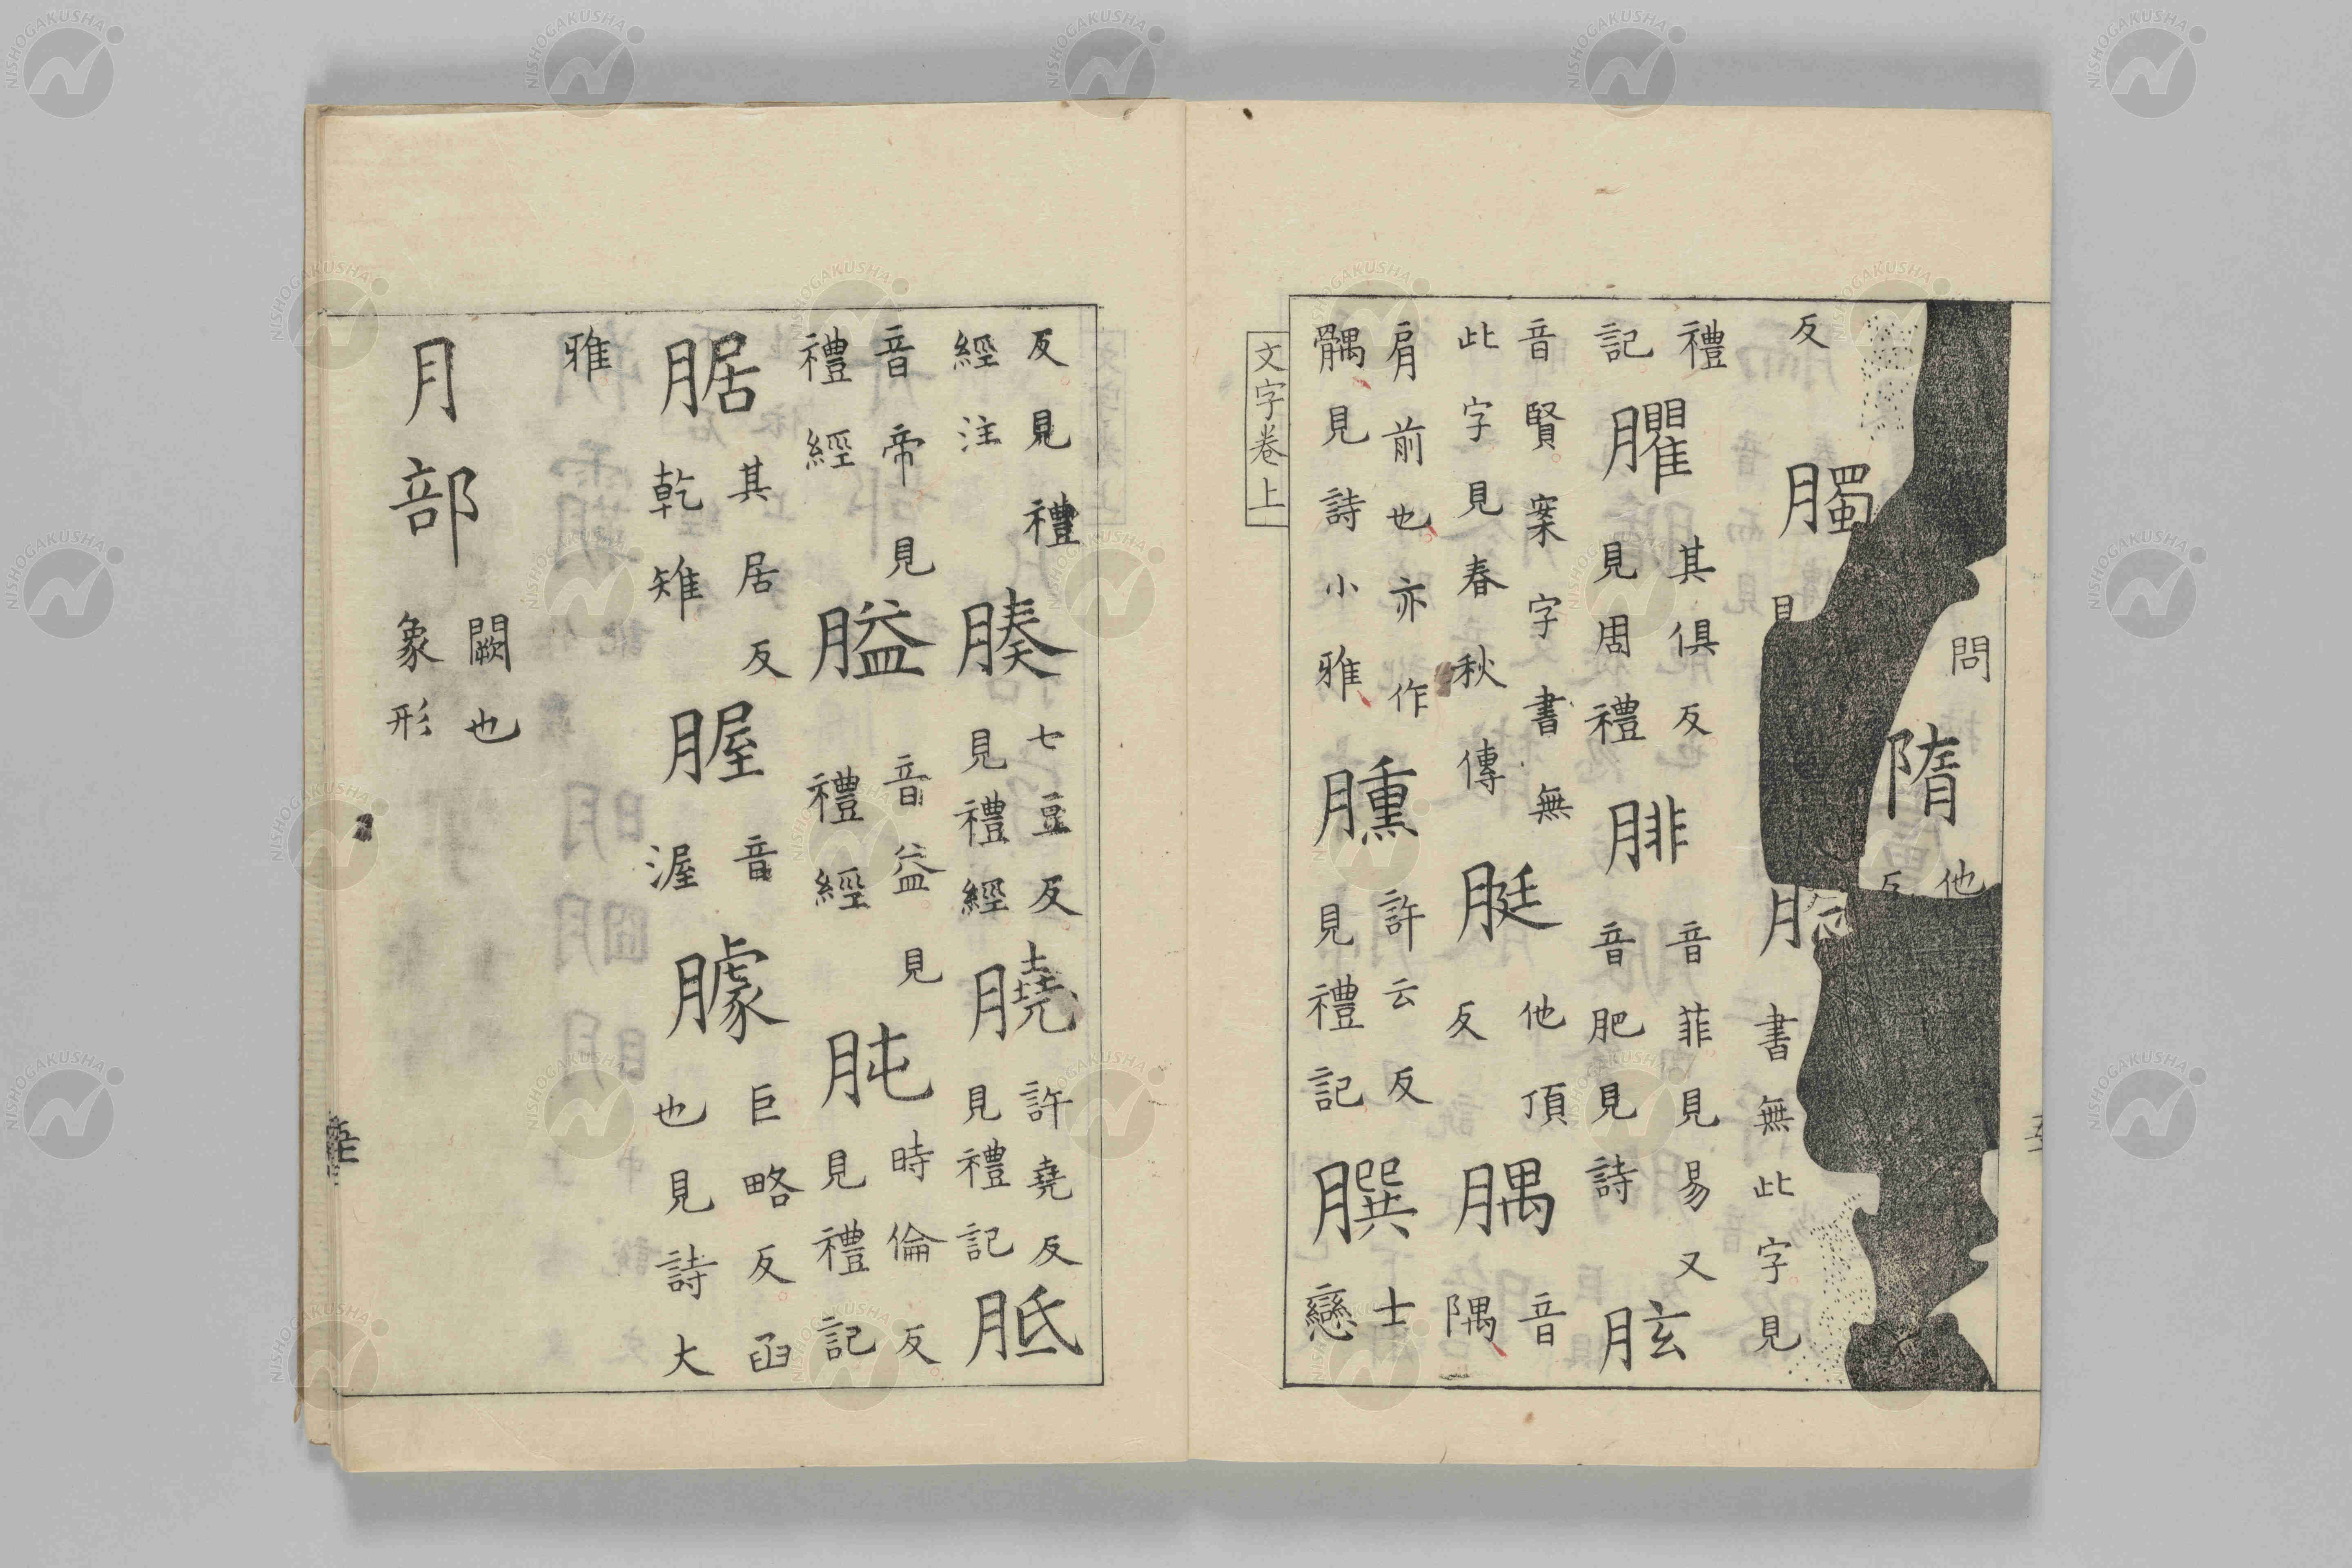 問隋他反
反臅見書無此字見
禮記臞其俱反見周禮腓音菲見易又音肥見詩胘
音賢案字書無此字見春秋傳脡他頂反腢音隅
肩前也亦作髃見詩小雅臐許云反見禮記𦠆士戀
文字卷上
反見禮經注腠七豆反見禮經膮許堯反見禮記胝
音帝見禮經膉音益見禮經肫時倫反見禮記
腒其居反乾雉腛音渥臄巨略反函也見詩大
雅
月部闕也象形